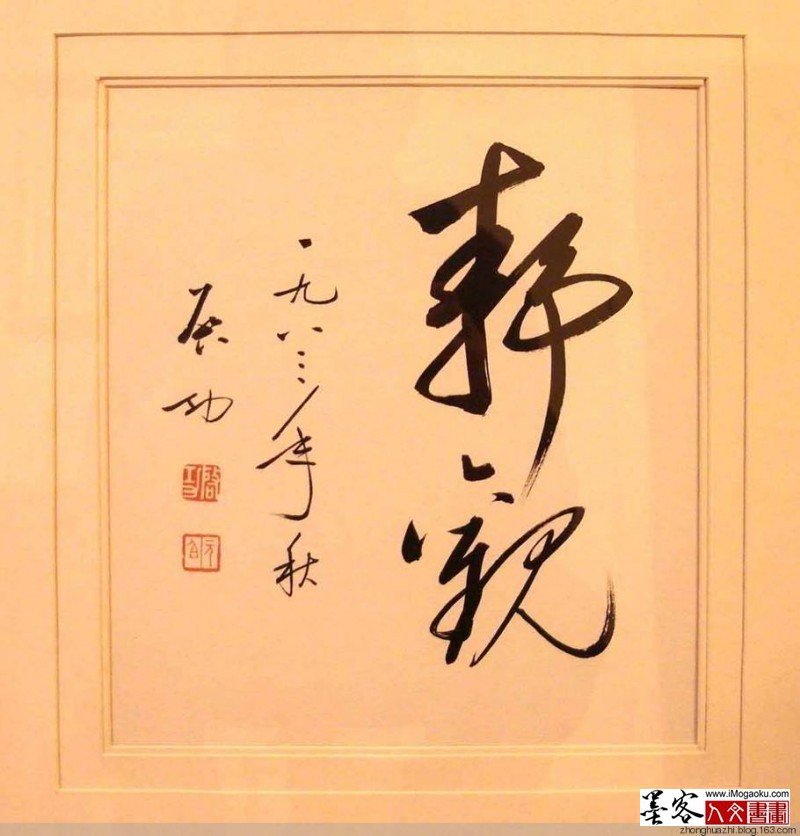 静觀
一九八三年秋
启功
www.iMogaoku.com
墨客
人文書畫
zhonghuazhi.blog.163.com